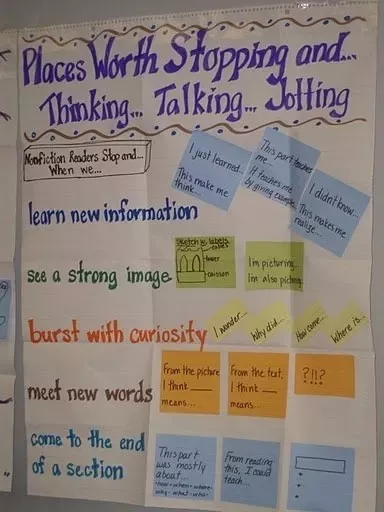 Places Worth Stopping and...
Thinking... Talking... Jotting
Nonfiction Readers Stop and...
When we...
learn new information
I just learned...
This make me
think...
This part teaches
me
It teaches me
by giving example
I didn't know...
This makes me
realize...
see a strong image
Sketch w/ labels
cables
tower
caisson
I'm picturing...
I'm also picturing
burst with curiosity
I wonder...
Why did...
How come...
Where is...
meet new words
From the picture
I think ____
means...
From the text,
I think ____
means...
?!!?
come to the end
of a section
This part
was mostly
about...
-how -when -where-
why - what - who-
From reading
this, I could
teach...